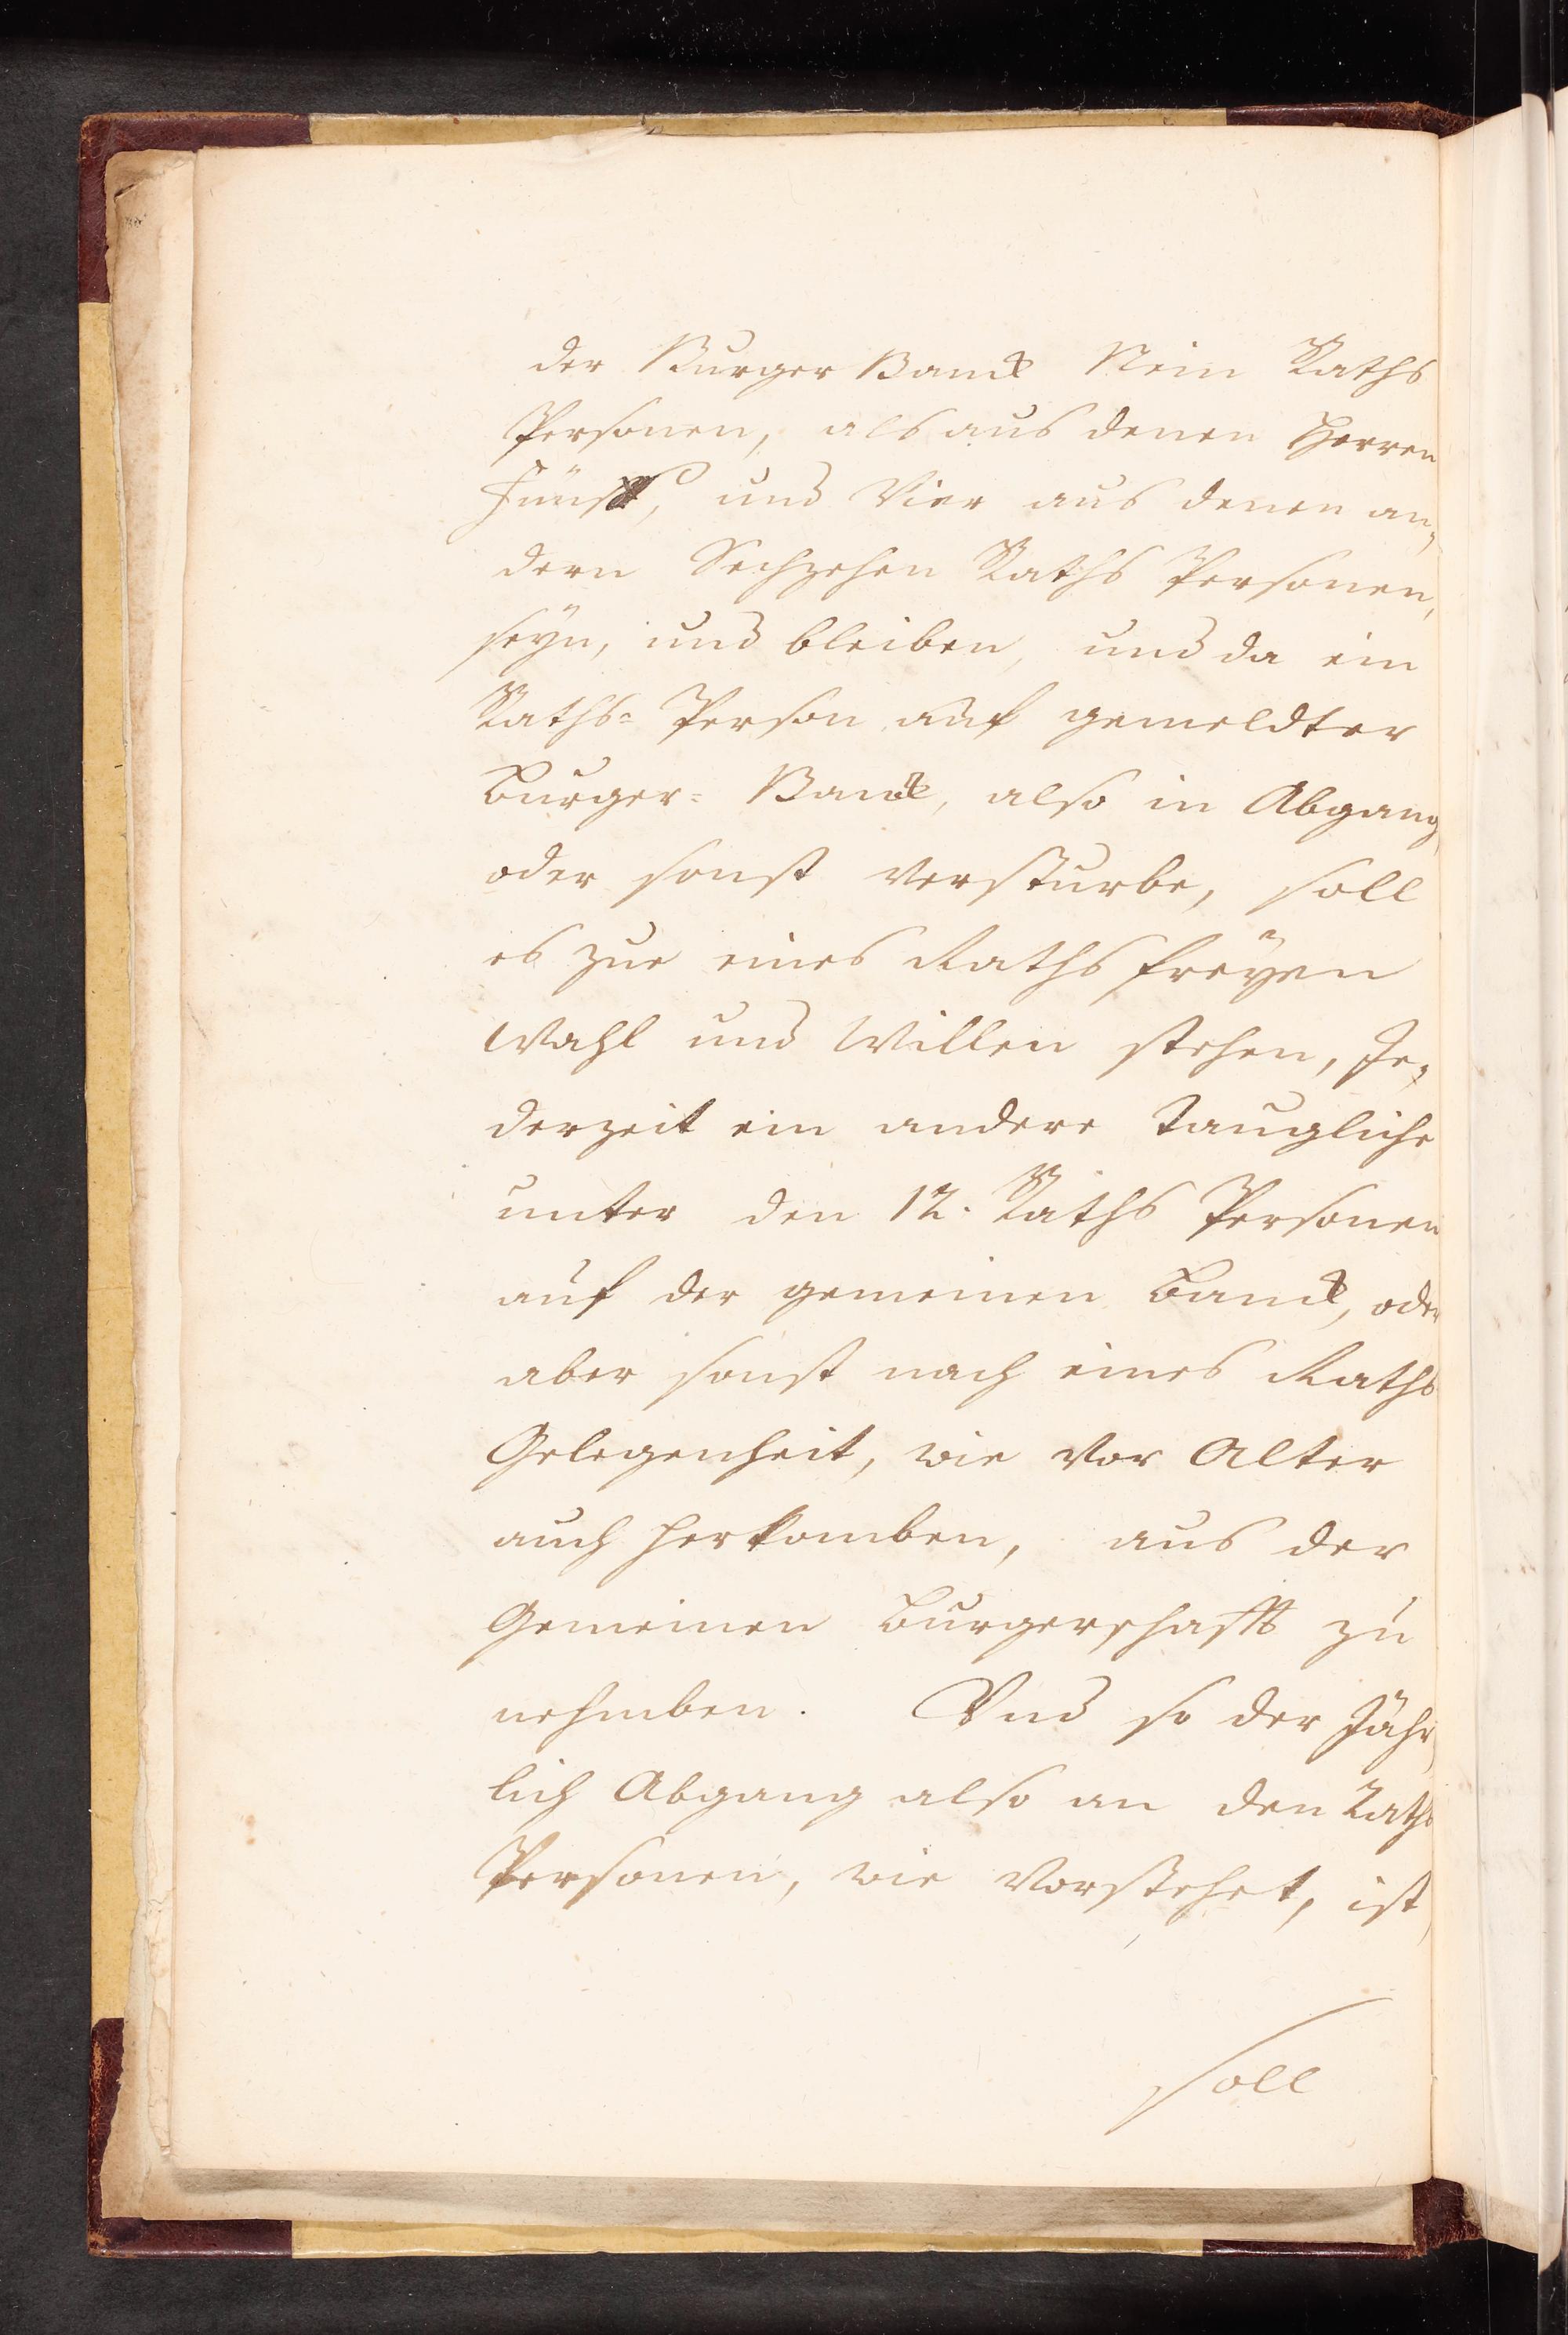 der Burger Banck Nein Raths
Personen, als aus denen Herren
Fünff, und Vier aus denen an„
dern Sechzehen Raths Personen,
seyn, und bleiben, und da ein
Raths= Person auf gemeldter
Burger= Banck, also in Abgang
oder sonst versturbe, soll
es zue eines Raths freÿen
Wahl und Willen stehen, Je„
derzeit ein andere Taugliche
unter den 12. Raths Personen
auf der gemeinen Banck, oder
aber sonst nach eines Raths
Gelegenheit, wie Vor Alter
auch herkomben, aus der
Gemeinen Burgerschafft zu
nehmben. Vnd so der Jähr
lich Abgang also an den Raths
Personen, wie Vorstehet, ist
soll